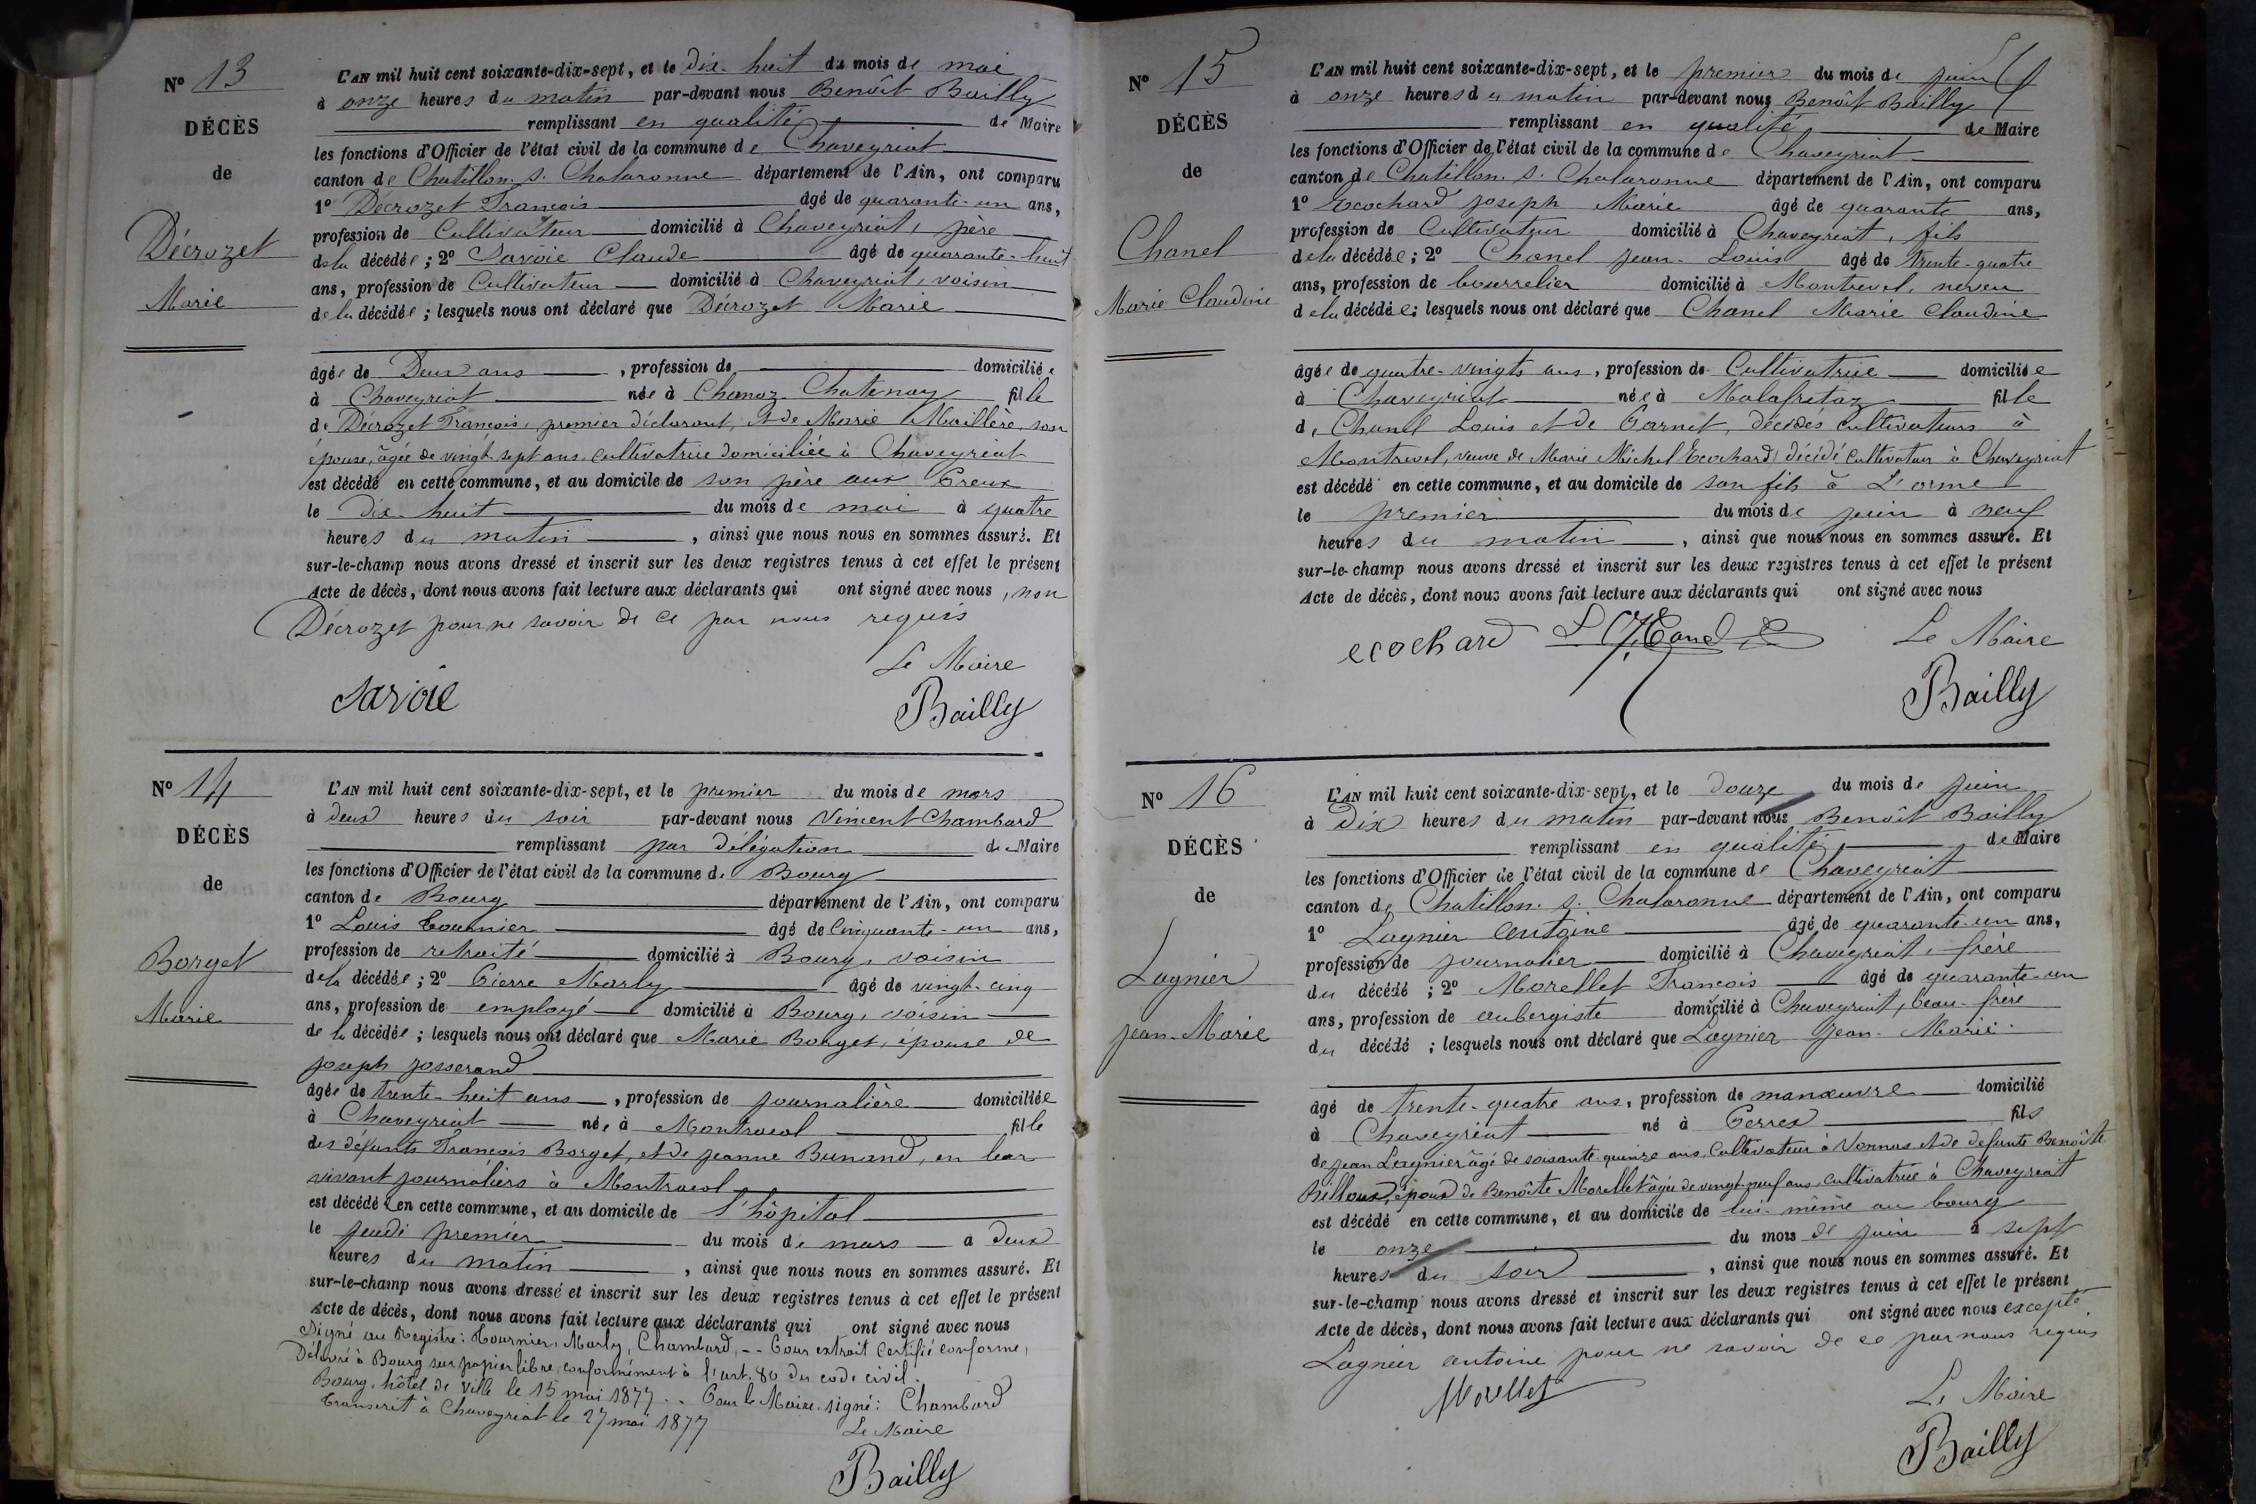 N° 13
DÉCÈS
de
Décrozet
Marie
L'AN mil huit cent soixante-dix-sept, et le dix-huit du mois de mai
à onze heures du matin par-devant nous Benoît Bailly
remplissant en qualité de Maire
les fonctions d'Officier de l'état civil de la commune de Chaveyriat
canton de Chatillon s. Chalaronne département de l'Ain, ont comparu
1° Décrozet François âgé de quarante-un ans,
profession de Cultivateur domicilié à Chaveyriat, père
de la décédée ; 2° Savoie Claude âgé de quarante-huit
ans, profession de Cultivateur domicilié à Chaveyriat, voisin
de la décédée ; lesquels nous ont déclaré que Décrozet Marie
âgée de Deux ans , profession de domiciliée
à Chaveyriat née à Chanoz Chatenay fille
de Décrozet François, premier déclarant, et de Marie Maillère, son
épouse, âgée de vingt-sept ans, cultivatrice domiciliée à Chaveyriat
est décédé en cette commune, et au domicile de son père aux Creux
le Dix-huit du mois de mai à quatre
heures du matin , ainsi que nous nous en sommes assuré. Et
sur-le-champ nous avons dressé et inscrit sur les deux registres tenus à cet effet le présent
Acte de décès, dont nous avons fait lecture aux déclarants qui ont signé avec nous, non
Décrozet pour ne savoir de ce par nous requis
Le Maire
Savoie Bailly
N° 14
DÉCÈS
de
Borget
Marie
L'AN mil huit cent soixante-dix-sept, et le premier du mois de mars
à deux heures du soir par-devant nous Vincent Chambard
remplissant par délégation de Maire
les fonctions d'Officier de l'état civil de la commune de Bourg
canton de Bourg département de l'Ain, ont comparu
1° Louis Tournier âgé de Cinquante-un ans,
profession de retraité domicilié à Bourg, voisin
de la décédée ; 2° Pierre Marly âgé de vingt-cinq
ans, profession de employé domicilié à Bourg, voisin
de la décédée ; lesquels nous ont déclaré que Marie Borget, épouse de
Joseph Josserand
âgée de trente-huit ans , profession de journalière domiciliée
à Chaveyriat née à Montracol fille
des défunts François Borget, et de Jeanne Bunand, en leur
vivant journaliers à Montracol
est décédée en cette commune, et au domicile de l'hôpital
le jeudi premier du mois de mars à deux
heures du matin , ainsi que nous nous en sommes assuré. Et
sur-le-champ nous avons dressé et inscrit sur les deux registres tenus à cet effet le présent
Acte de décès, dont nous avons fait lecture aux déclarants qui ont signé avec nous
Signé au Registre : Tournier, Marly, Chambard, -- Pour extrait certifié conforme,
Délivré à Bourg sur papier libre conformément à l'art. 80 du code civil.
Bourg, hôtel de Ville le 15 mai 1877 .. Pour le Maire, signé : Chambard
Transcrit à Chaveyriat le 27 mai 1877
Le Maire
Bailly
N° 15
DÉCÈS
de
Chanel
Marie Claudine
L'AN mil huit cent soixante-dix-sept, et le premier du mois de juin
à onze heures du matin par-devant nous Benoît Bailly
remplissant en qualité de Maire
les fonctions d'Officier de l'état civil de la commune de Chaveyriat
canton de Chatillon s. Chalaronne département de l'Ain, ont comparu
1° Ecochard Joseph Marie âgé de quarante ans,
profession de Cultivateur domicilié à Chaveyriat, fils
de la décédée ; 2° Chanel Jean-Louis âgé de trente-quatre
ans, profession de bourrelier domicilié à Montrevel, neveu
de la décédée ; lesquels nous ont déclaré que Chanel Marie Claudine
âgée de quatre-vingts ans, profession de Cultivatrice domiciliée
à Chaveyriat née à Malafretaz fille
de Chanel Louis et de Garnet, décédés Cultivateurs à
Montrevel, veuve de Marie Michel Ecochard, décédé Cultivateur à Chaveyriat
est décédé en cette commune, et au domicile de son fils à L'orme
le premier du mois de juin à neuf
heures du matin , ainsi que nous nous en sommes assuré. Et
sur-le-champ nous avons dressé et inscrit sur les deux registres tenus à cet effet le présent
Acte de décès, dont nous avons fait lecture aux déclarants qui ont signé avec nous
ecochard Le Maire
Bailly
N° 16
DÉCÈS
de
Lagnier
Jean-Marie
L'AN mil huit cent soixante-dix-sept, et le douze du mois de juin
à Dix heures du matin par-devant nous Benoît Bailly
remplissant en qualité de Maire
les fonctions d'Officier de l'état civil de la commune de Chaveyriat
canton de Chatillon s. Chalaronne département de l'Ain, ont comparu
1° Lagnier Antoine âgé de quarante-un ans,
profession de journalier domicilié à Chaveyriat, frère
du décédé ; 2° Morellet François âgé de quarante-un
ans, profession de aubergiste domicilié à Chaveyriat, beau-frère
du décédé ; lesquels nous ont déclaré que Lagnier Jean-Marie
âgé de trente-quatre ans, profession de manœuvre domicilié
à Chaveyriat né à Perrex fils
de Jean Lagnier âgé de soixante-quinze ans, Cultivateur à Vonnas et de défunte Benoîte
Billoux, époux de Benoîte Morellet âgée de vingt-neuf ans, cultivatrice à Chaveyriat
est décédé en cette commune, et au domicile de lui-même au bourg
le onze du mois de juin à sept
heures du soir , ainsi que nous nous en sommes assuré. Et
sur-le-champ nous avons dressé et inscrit sur les deux registres tenus à cet effet le présent
Acte de décès, dont nous avons fait lecture aux déclarants qui ont signé avec nous excepté
Lagnier Antoine pour ne savoir de ce par nous requis
Morellet Le Maire
Bailly